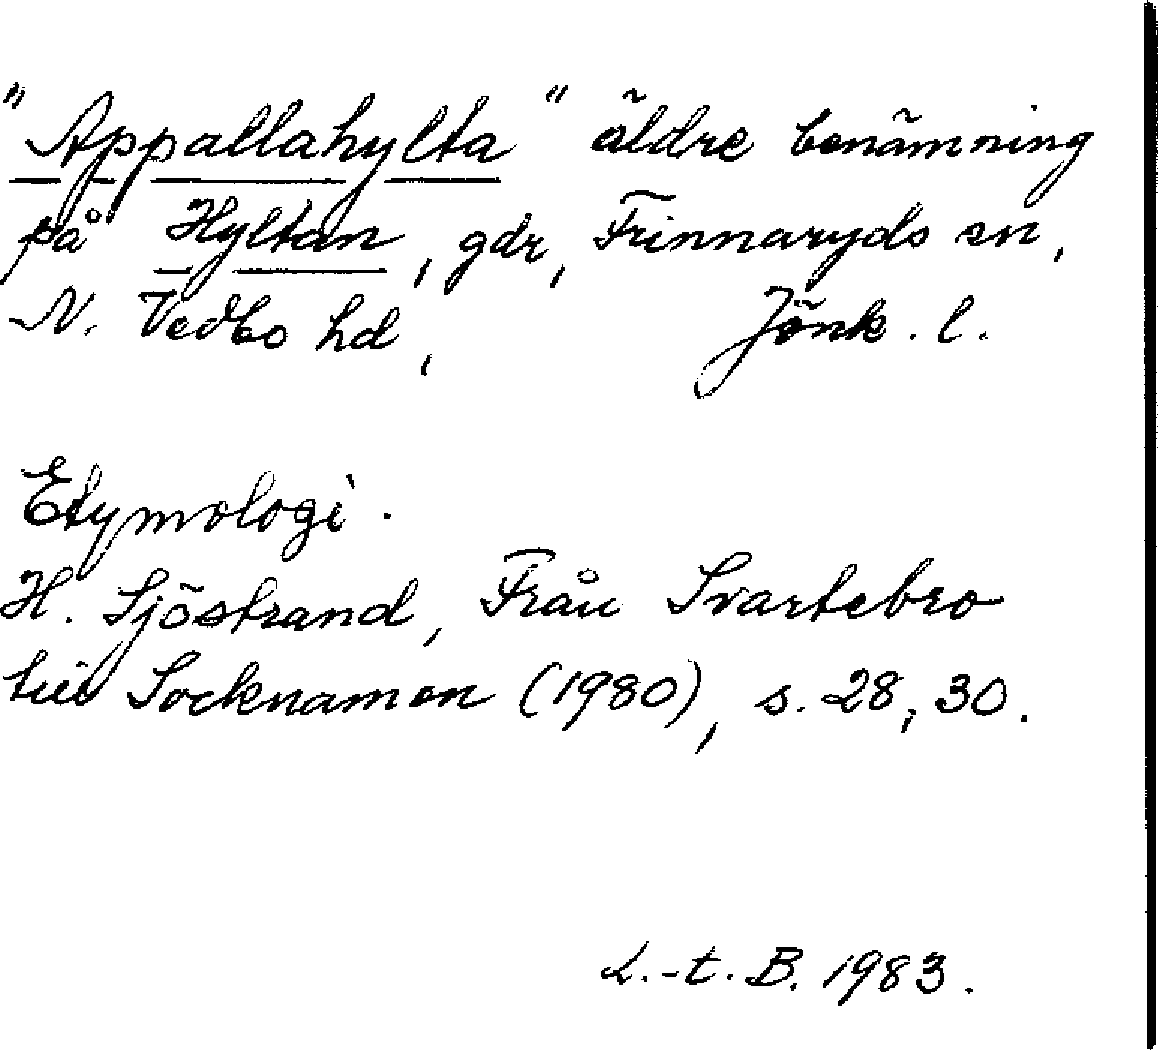 "Appallahylta" äldre benämning
på Hyltan, gdr, Frinnaryds sn,
N. Vedbo hd, Jönk. l.
Etymologi.
H. Sjöstrand, Från Svartebro
till Socknamen (1980), s. 28, 30.
L.-t. B. 1983.